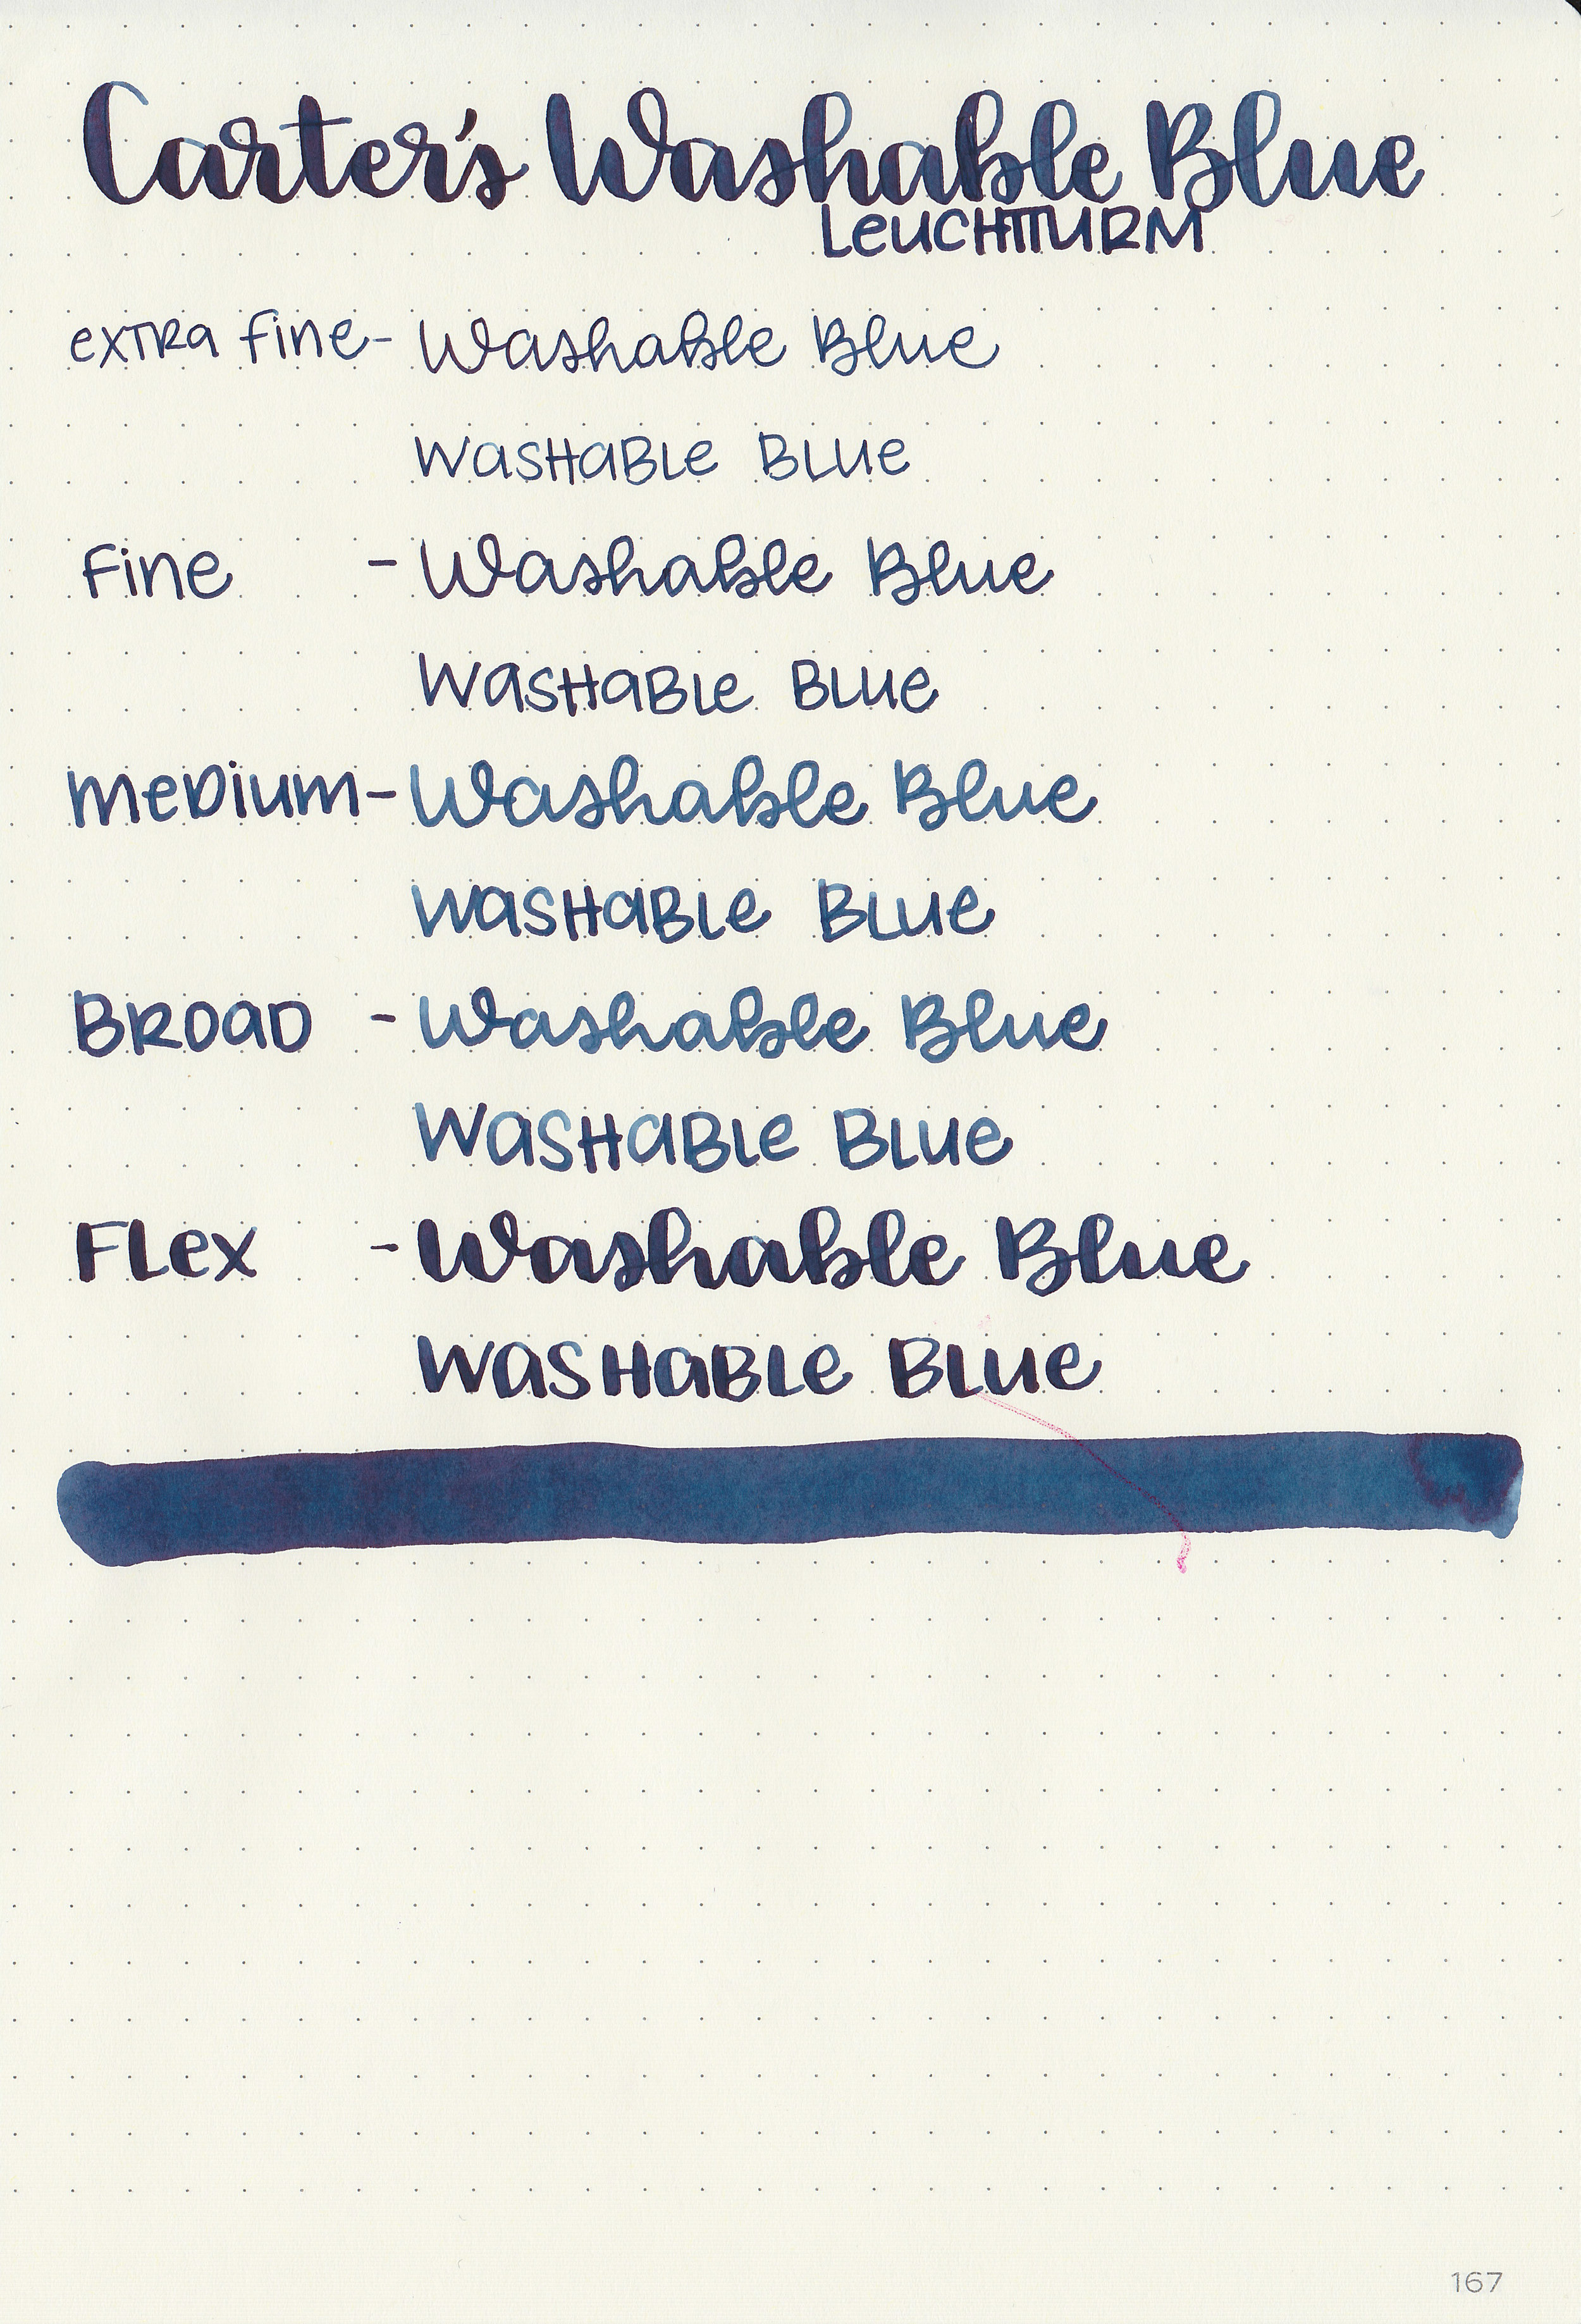 Carter's Washable Blue
Leuchtturm
extra fine - Washable Blue
Washable Blue
Fine - Washable Blue
Washable Blue
Medium - Washable Blue
Washable Blue
Broad - Washable Blue
Washable Blue
Flex - Washable Blue
Washable Blue
167